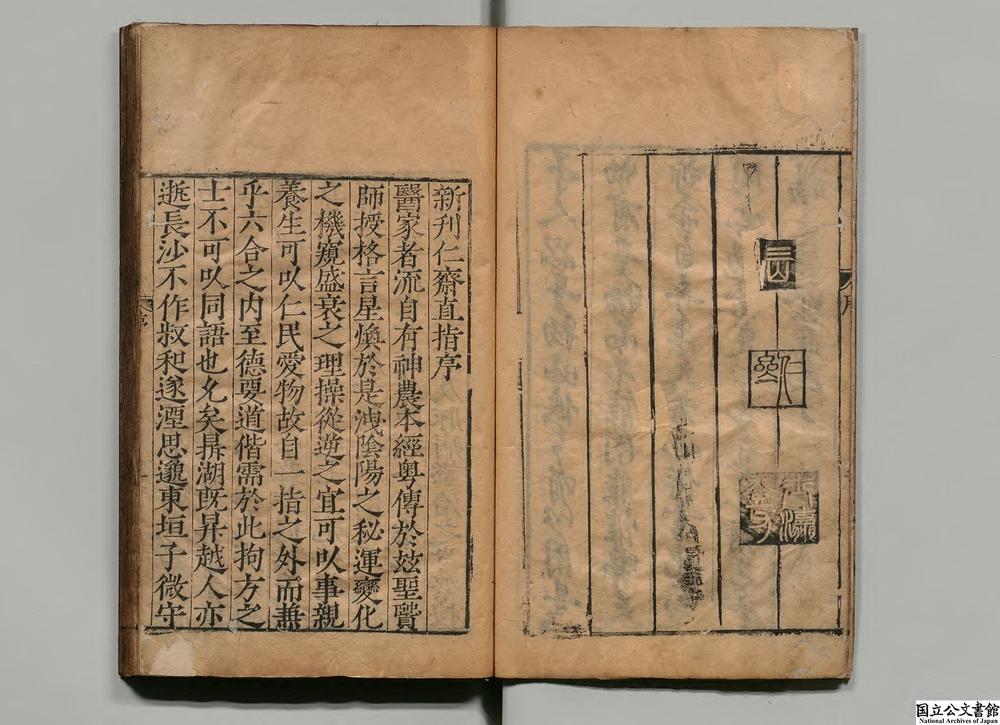 新刋仁齋直指序
醫家者流自有神農本經粤傳於玆聖賢
師授格言星煥於是洩陰陽之秘運變化
之機窺盛衰之理操從逆之宜可以事親
養生可以仁民愛物故自一指之外而兼
乎六合之内至德要道偕需於此拘方之
士不可以同語也允矣鼎湖旣昇越人亦
逝長沙不作叔和遂湮思邈東垣子微守
序
国立公文書館
National Archives of Japan